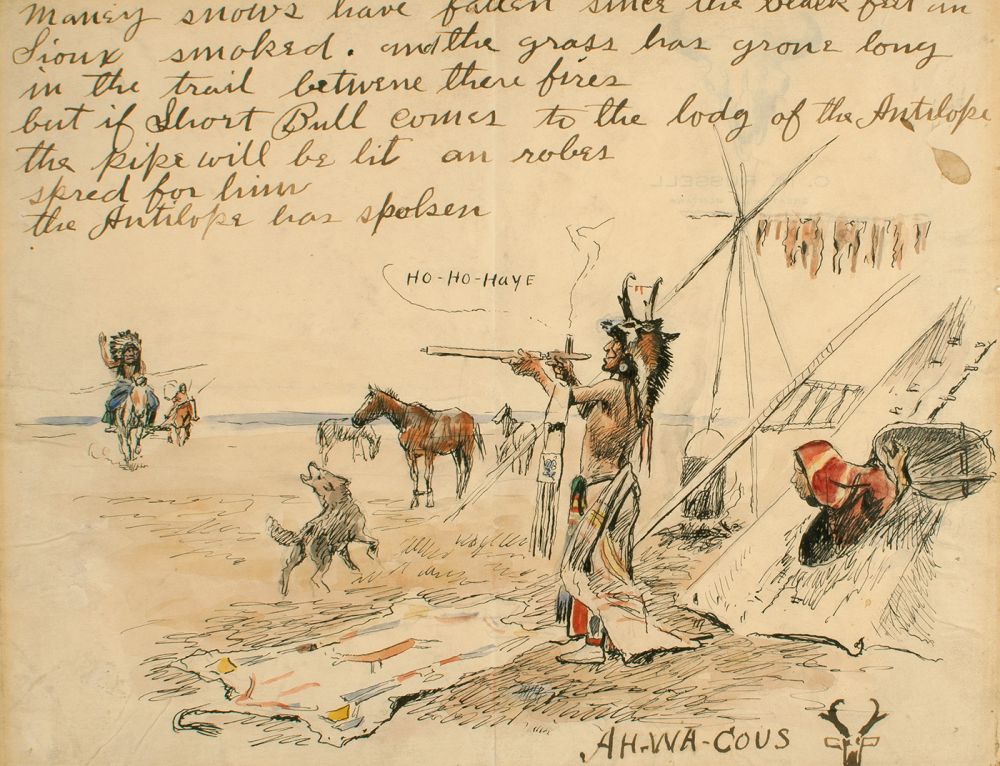 Maney snows have fallen since the black feet an
Sioux smoked. and the grass has grone long
in the trail betwene there fires
but if Short Bull comes to the lodg of the Antilope
the pipe will be lit an robes
spred for him
the Antilope has spoken
HO-HO-HAYE
AH-WA-COUS